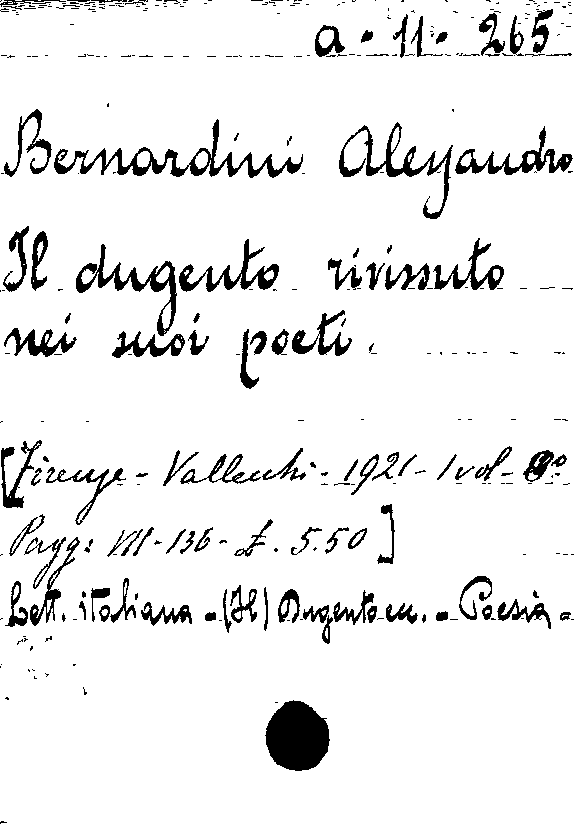 a · 11 · 265
Bernardini Alessandro
Il dugento rivissuto
nei suoi poeti.
[Firenze - Vallecchi - 1921 - 1 vol - 8°
Pagg: VII - 136 - £. 5.50]
Lett. italiana - (Il) Dugento ecc. - Poesia -